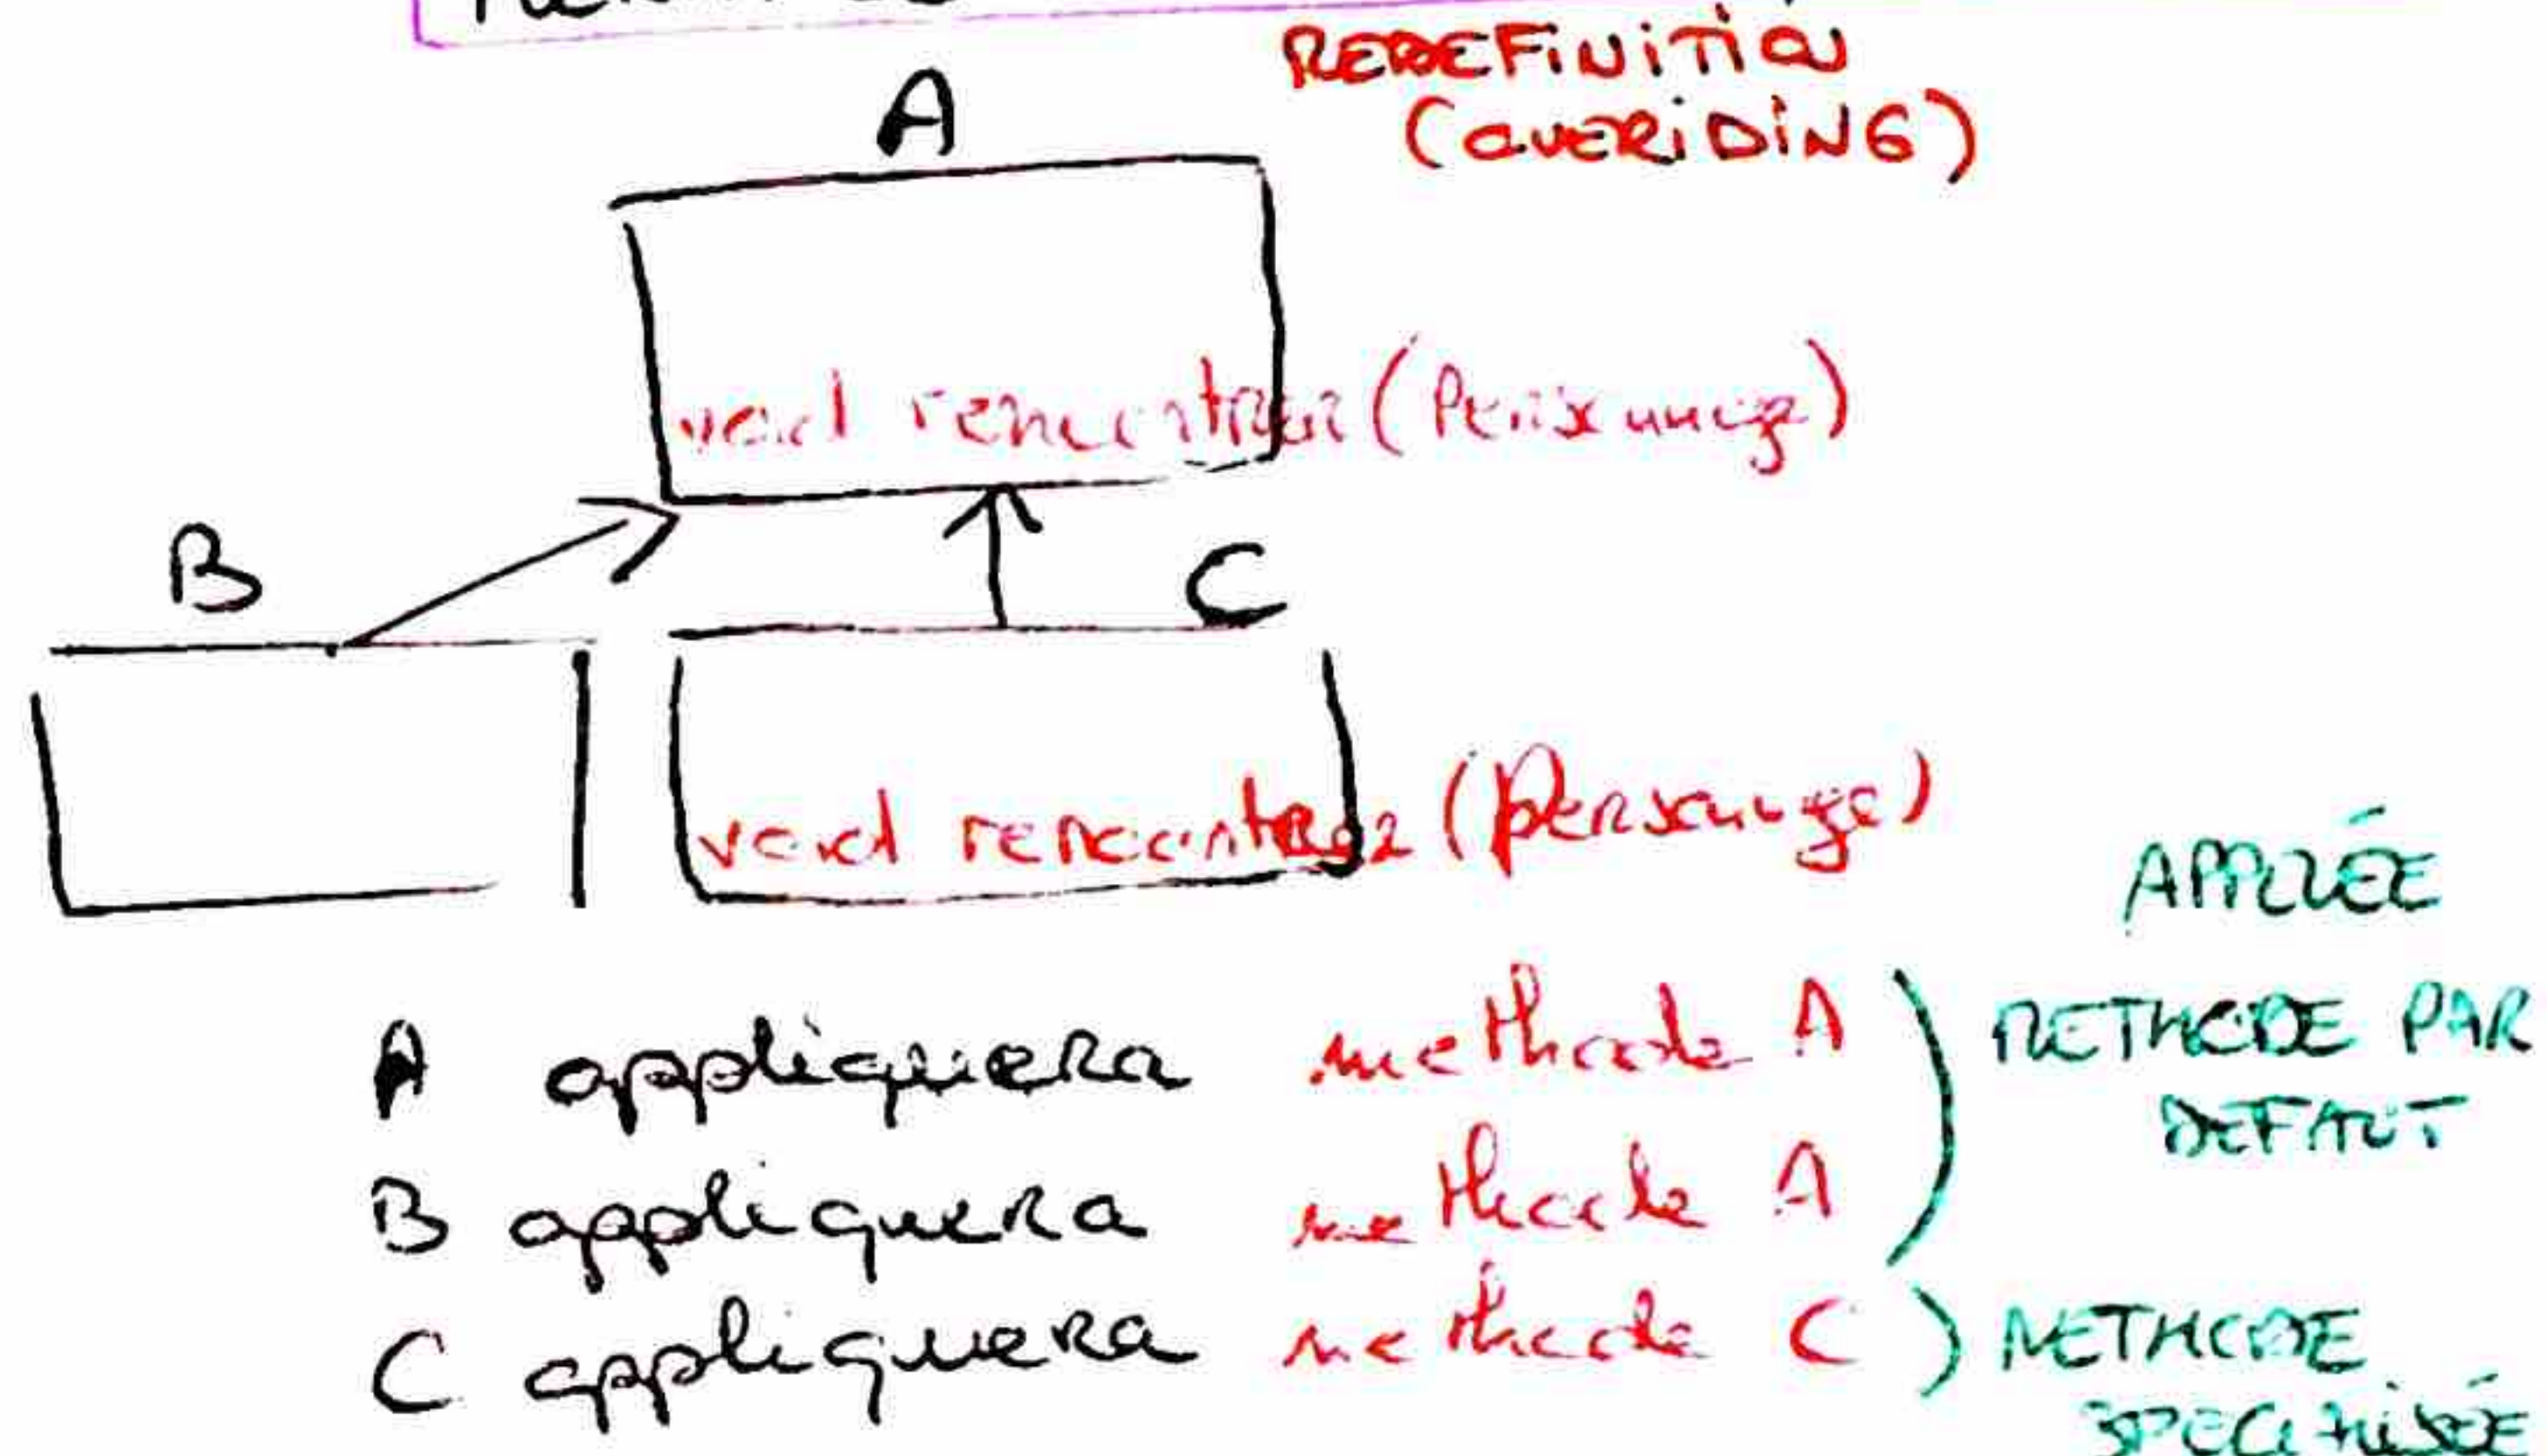 REDEFINITION
(OVERIDING)
A
void rencontrer (Personnage)
B
C
void rencontrer (Personnage)
APPELÉE
A appliquera methode A
METHODE PAR
DEFAUT
B appliquera methode A
C appliquera methode C
METHODE
SPECIALISÉE